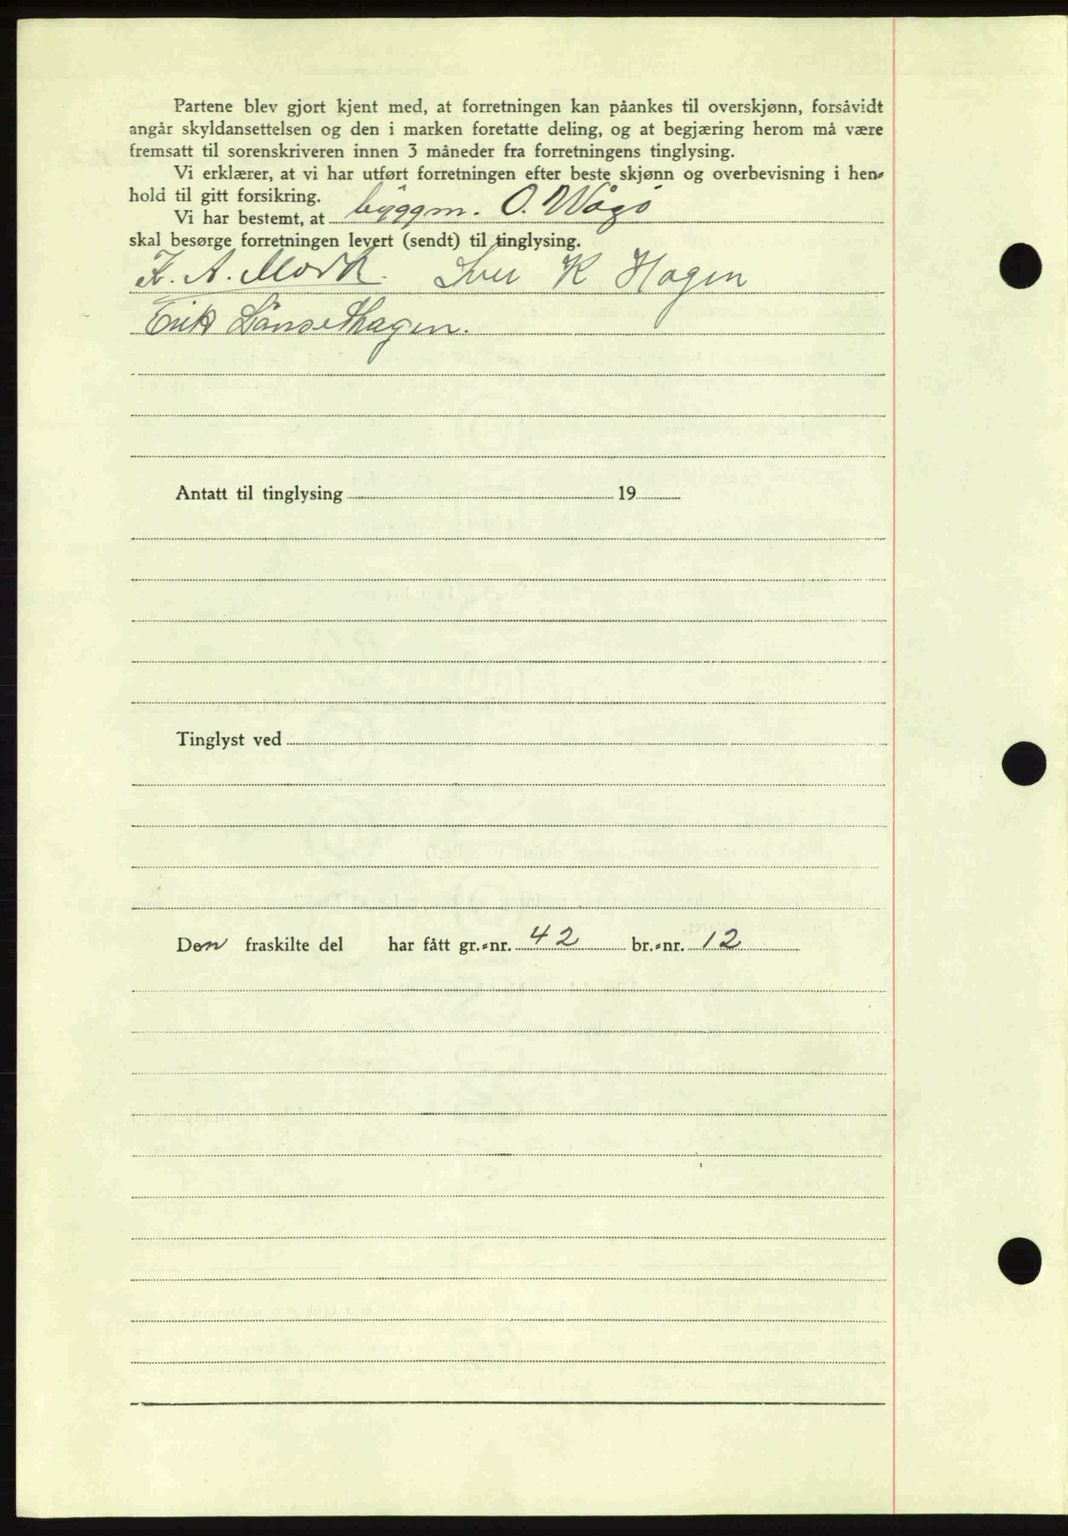 Partene blev gjort kjent med, at forretningen kan påankes til overskjønn, forsåvidt
angår skyldansettelsen og den i marken foretatte deling, og at begjæring herom må være
fremsatt til sorenskriveren innen 3 måneder fra forretningens tinglysing.
Vi erklærer, at vi har utført forretningen efter beste skjønn og overbevisning i hen-
hold til gitt forsikring.
Vi har bestemt, at byggm. O. Wågø
skal besørge forretningen levert (sendt) til tinglysing.
K. A. Mork. Iver K Hagen
Erik Lånsethagen.
Antatt til tinglysing 19
Tinglyst ved
Den fraskilte del har fått gr.-nr. 42 br.-nr. 12